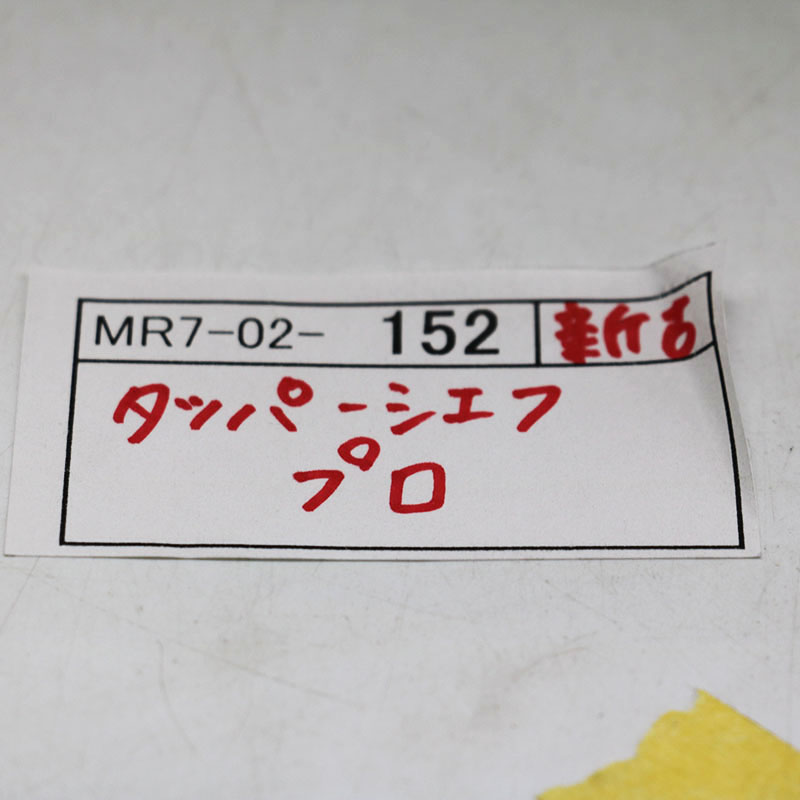 MR7-02- 152 新古
タッパーシェフ
プロ